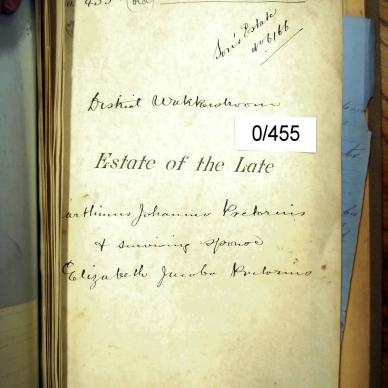 455 (Old)
Son's Estate
No 6166
District Wakkerstroom
0/455
Estate of the Late
arthinus Johannes Pretorius
& surviving spouse
Elizabeth Jacoba Pretorius